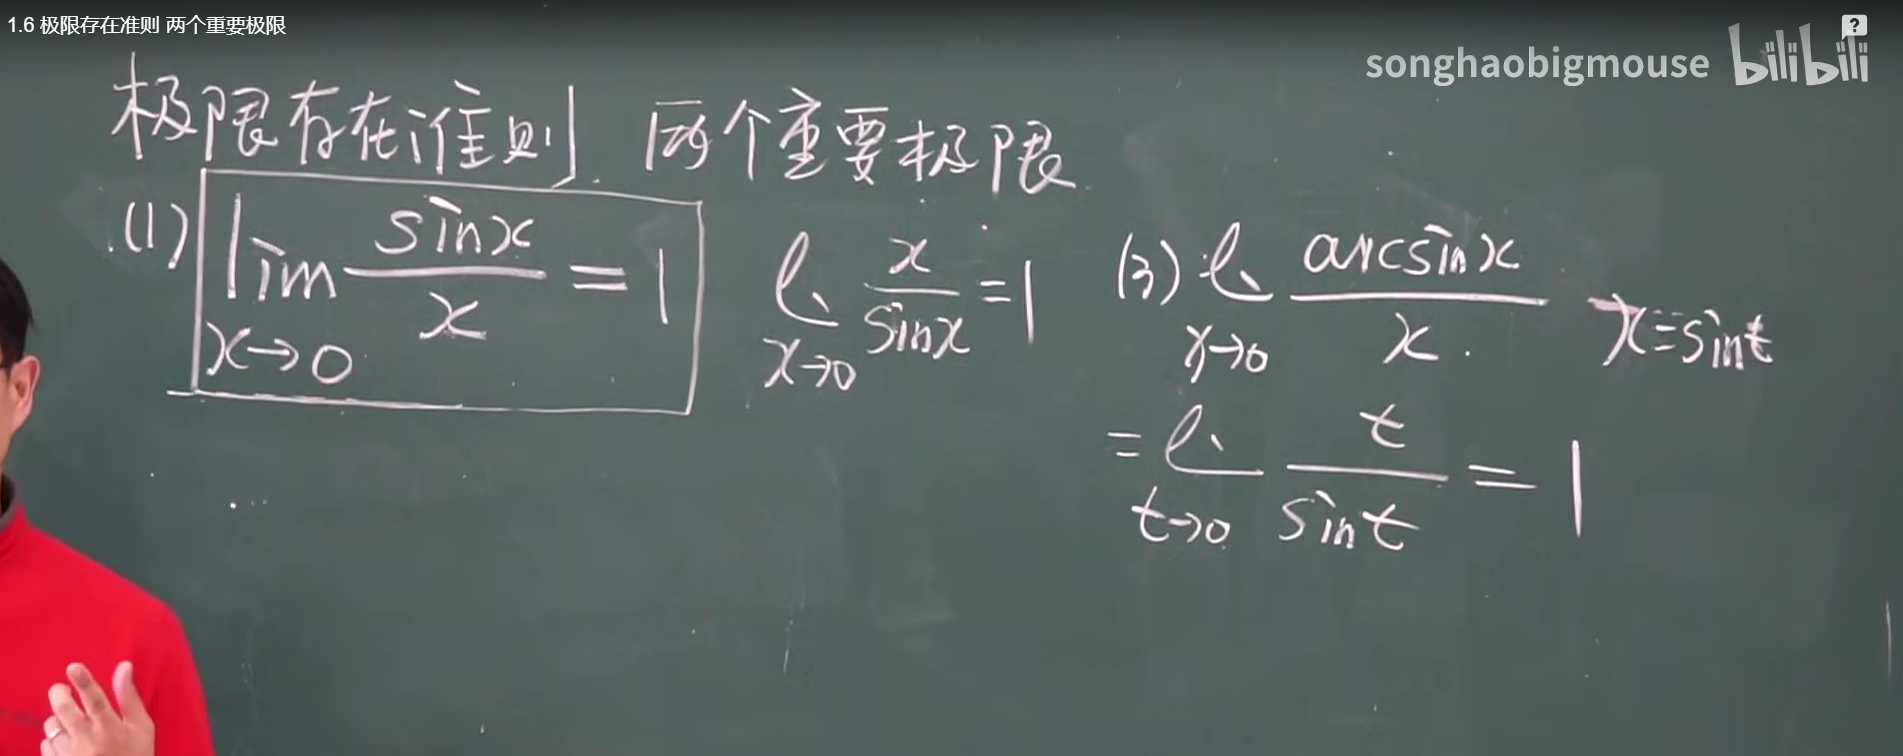 1.6 极限存在准则 两个重要极限
songhaobigmouse bilibili
极限存在准则. 两个重要极限.
(1) lim x→0 sinx/x = 1
l. x→0 x/sinx = 1
(3) l. x→0 arcsinx/x. x=sint
= l. t→0 t/sint = 1